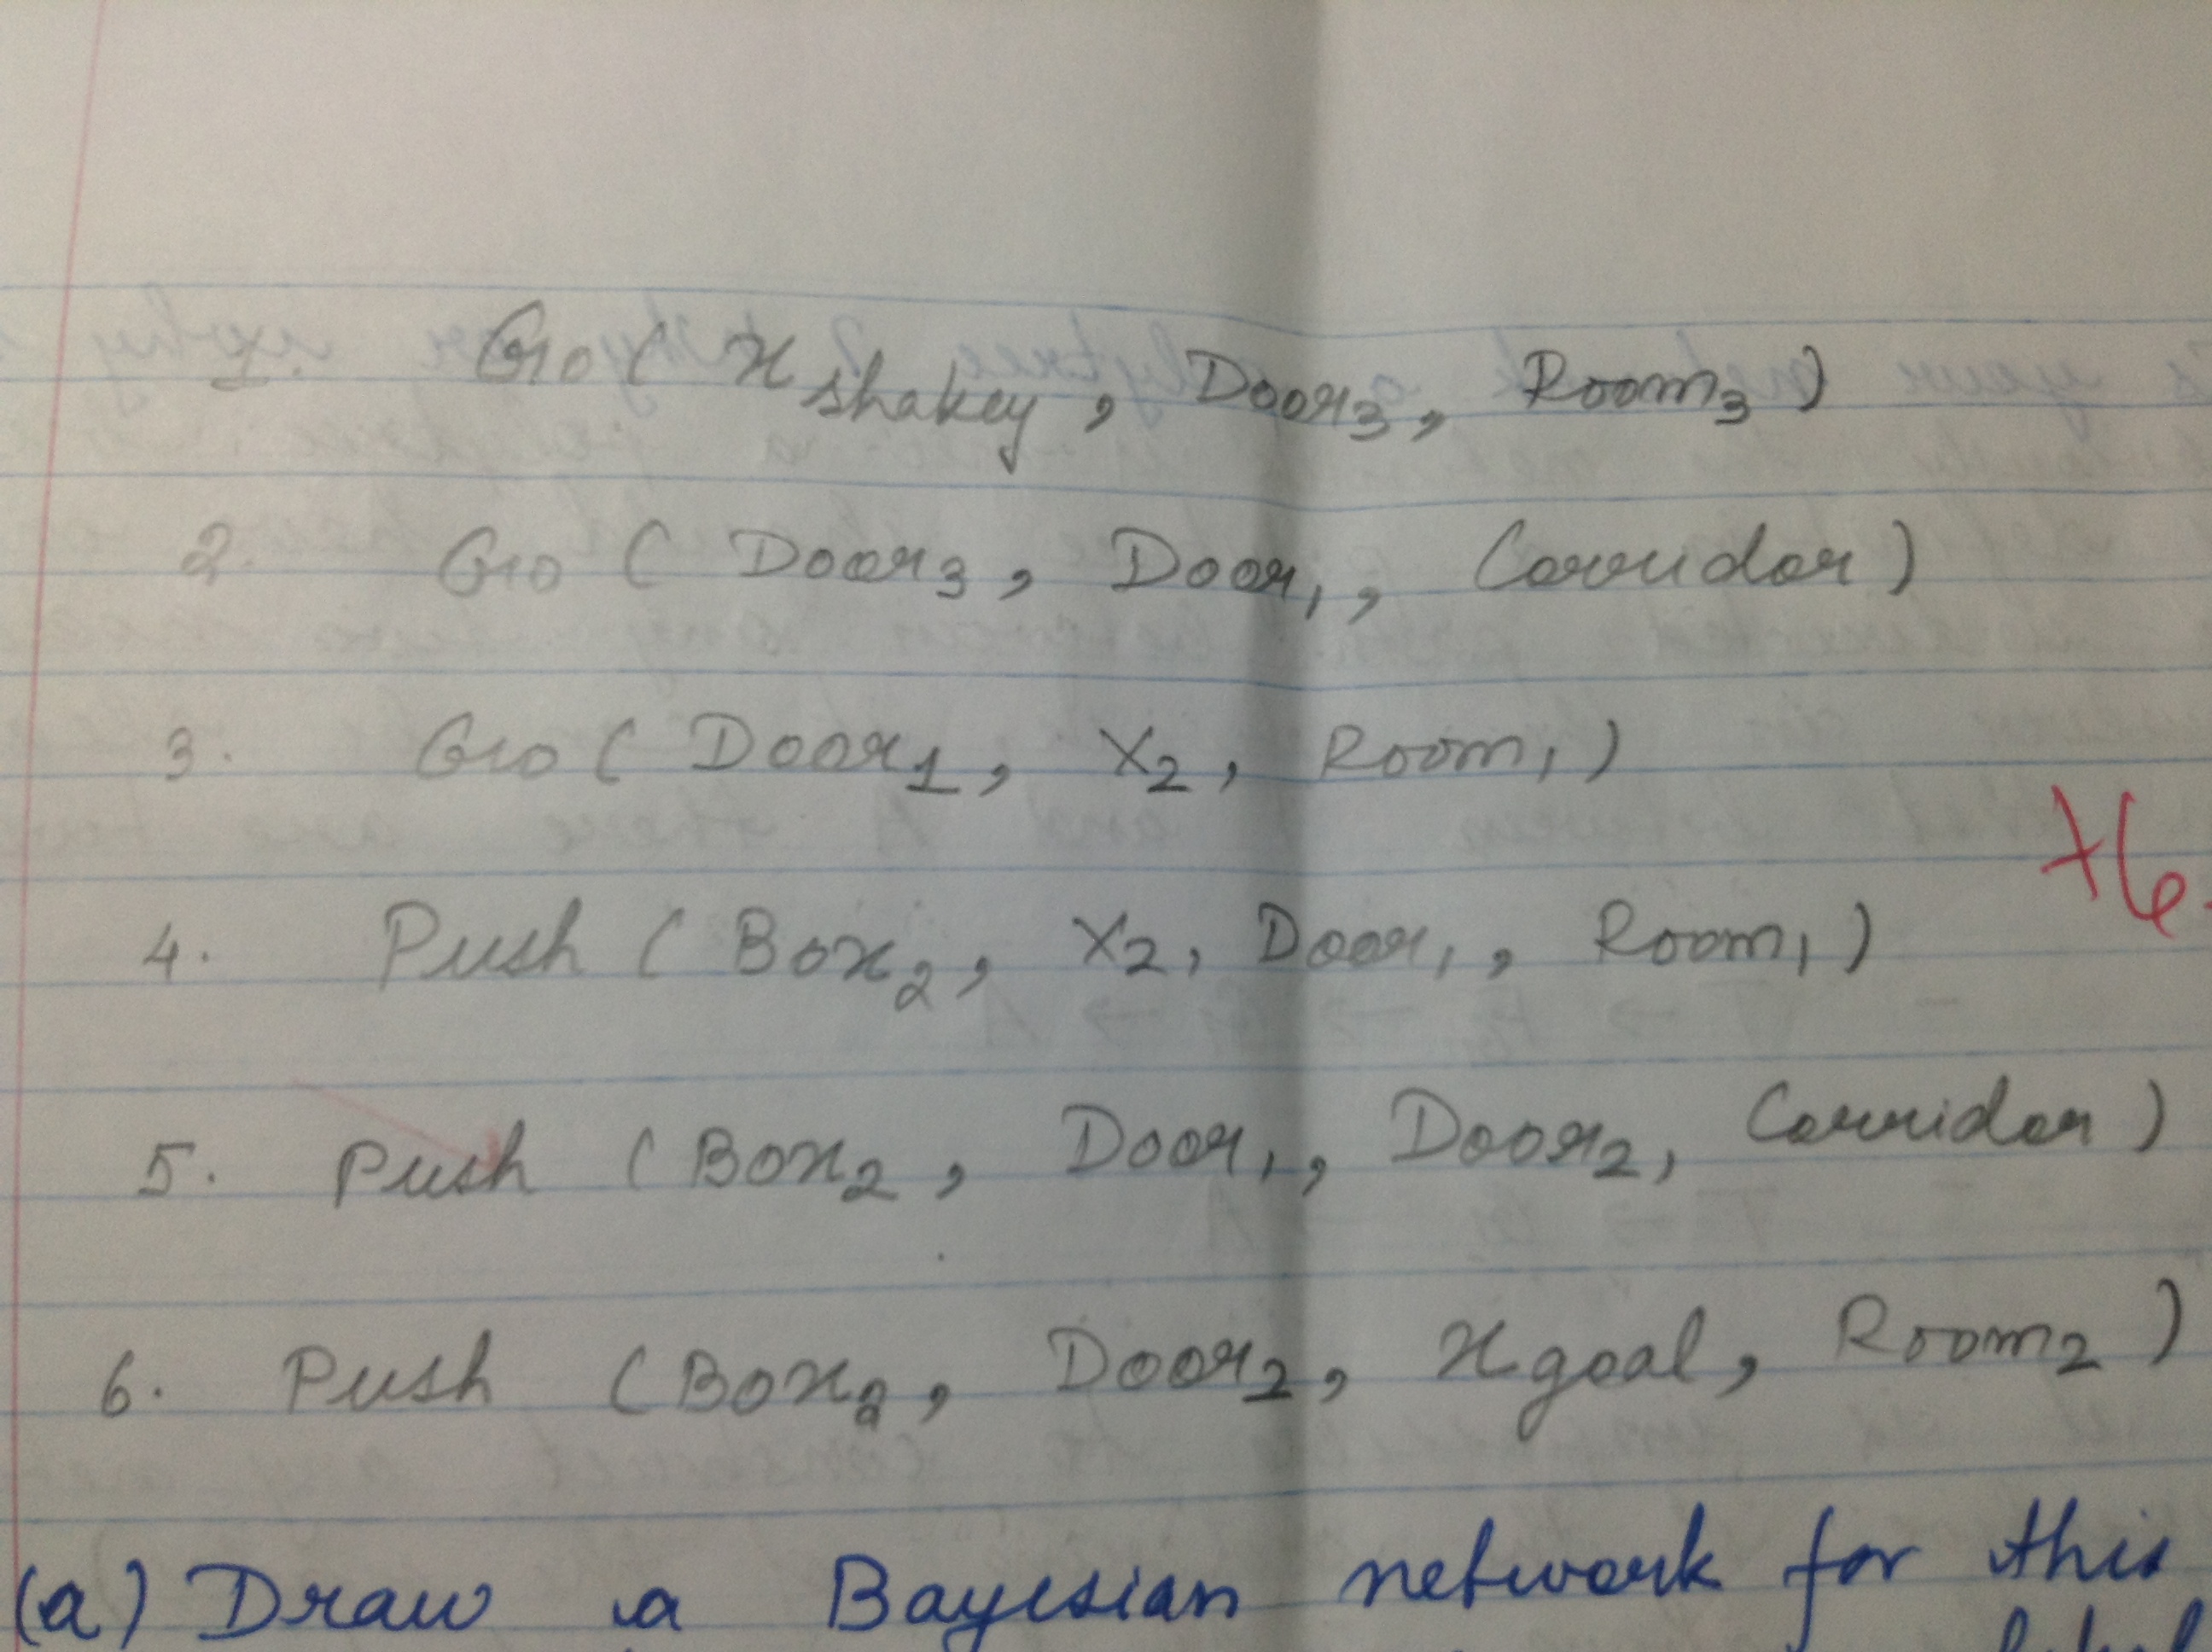 1. Go ( x shakey , Door3 , Room3 )
2. Go ( Door3 , Door1 , Corridor )
3. Go ( Door1 , X2 , Room1 )
+6.
4. Push ( Box2 , X2 , Door1 , Room1 )
5. Push ( Box2 , Door1 , Door2 , Corridor )
6. Push ( Box2 , Door2 , x goal , Room2 )
(a) Draw a Bayesian network for this